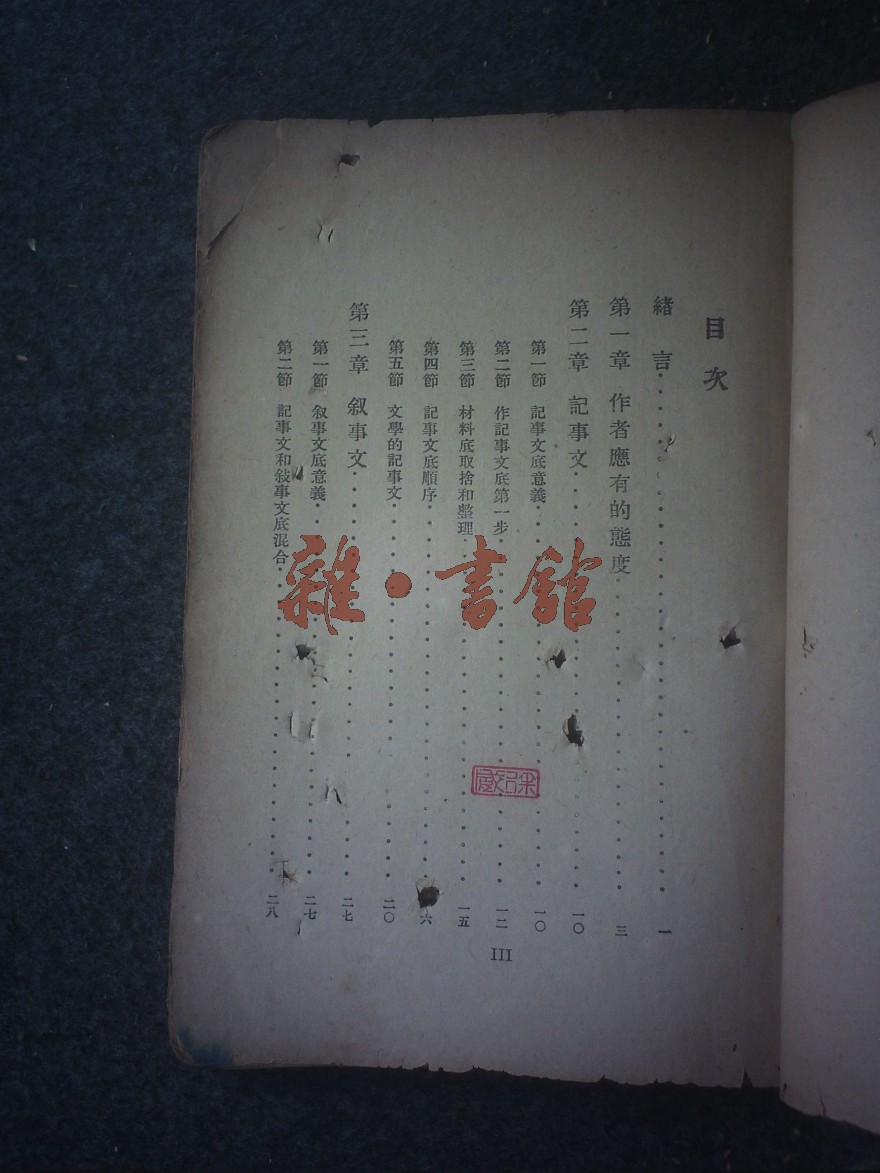 目次
緒言・・・・・・・・・・・・・・・・一
第一章 作者應有的態度・・・・・・・・・・・・三
第二章 記事文・・・・・・・・・・・・一〇
第一節 記事文底意義・・・・・・・・・・・・一〇
第二節 作記事文底第一步・・・・・・・・・・・・一二
第三節 材料底取捨和整理・・・・・・・・・・・・一五
第四節 記事文底順序・・・・・・・・・・・・六
第五節 文學的記事文・・・・・・・・・・・・二〇
第三章 叙事文・・・・・・・・・・・・二七
第一節 叙事文底意義・・・・・・・・・・・・二七
第二節 記事文和敍事文底混合・・・・・・・・・・・・二八
III
雜・書館